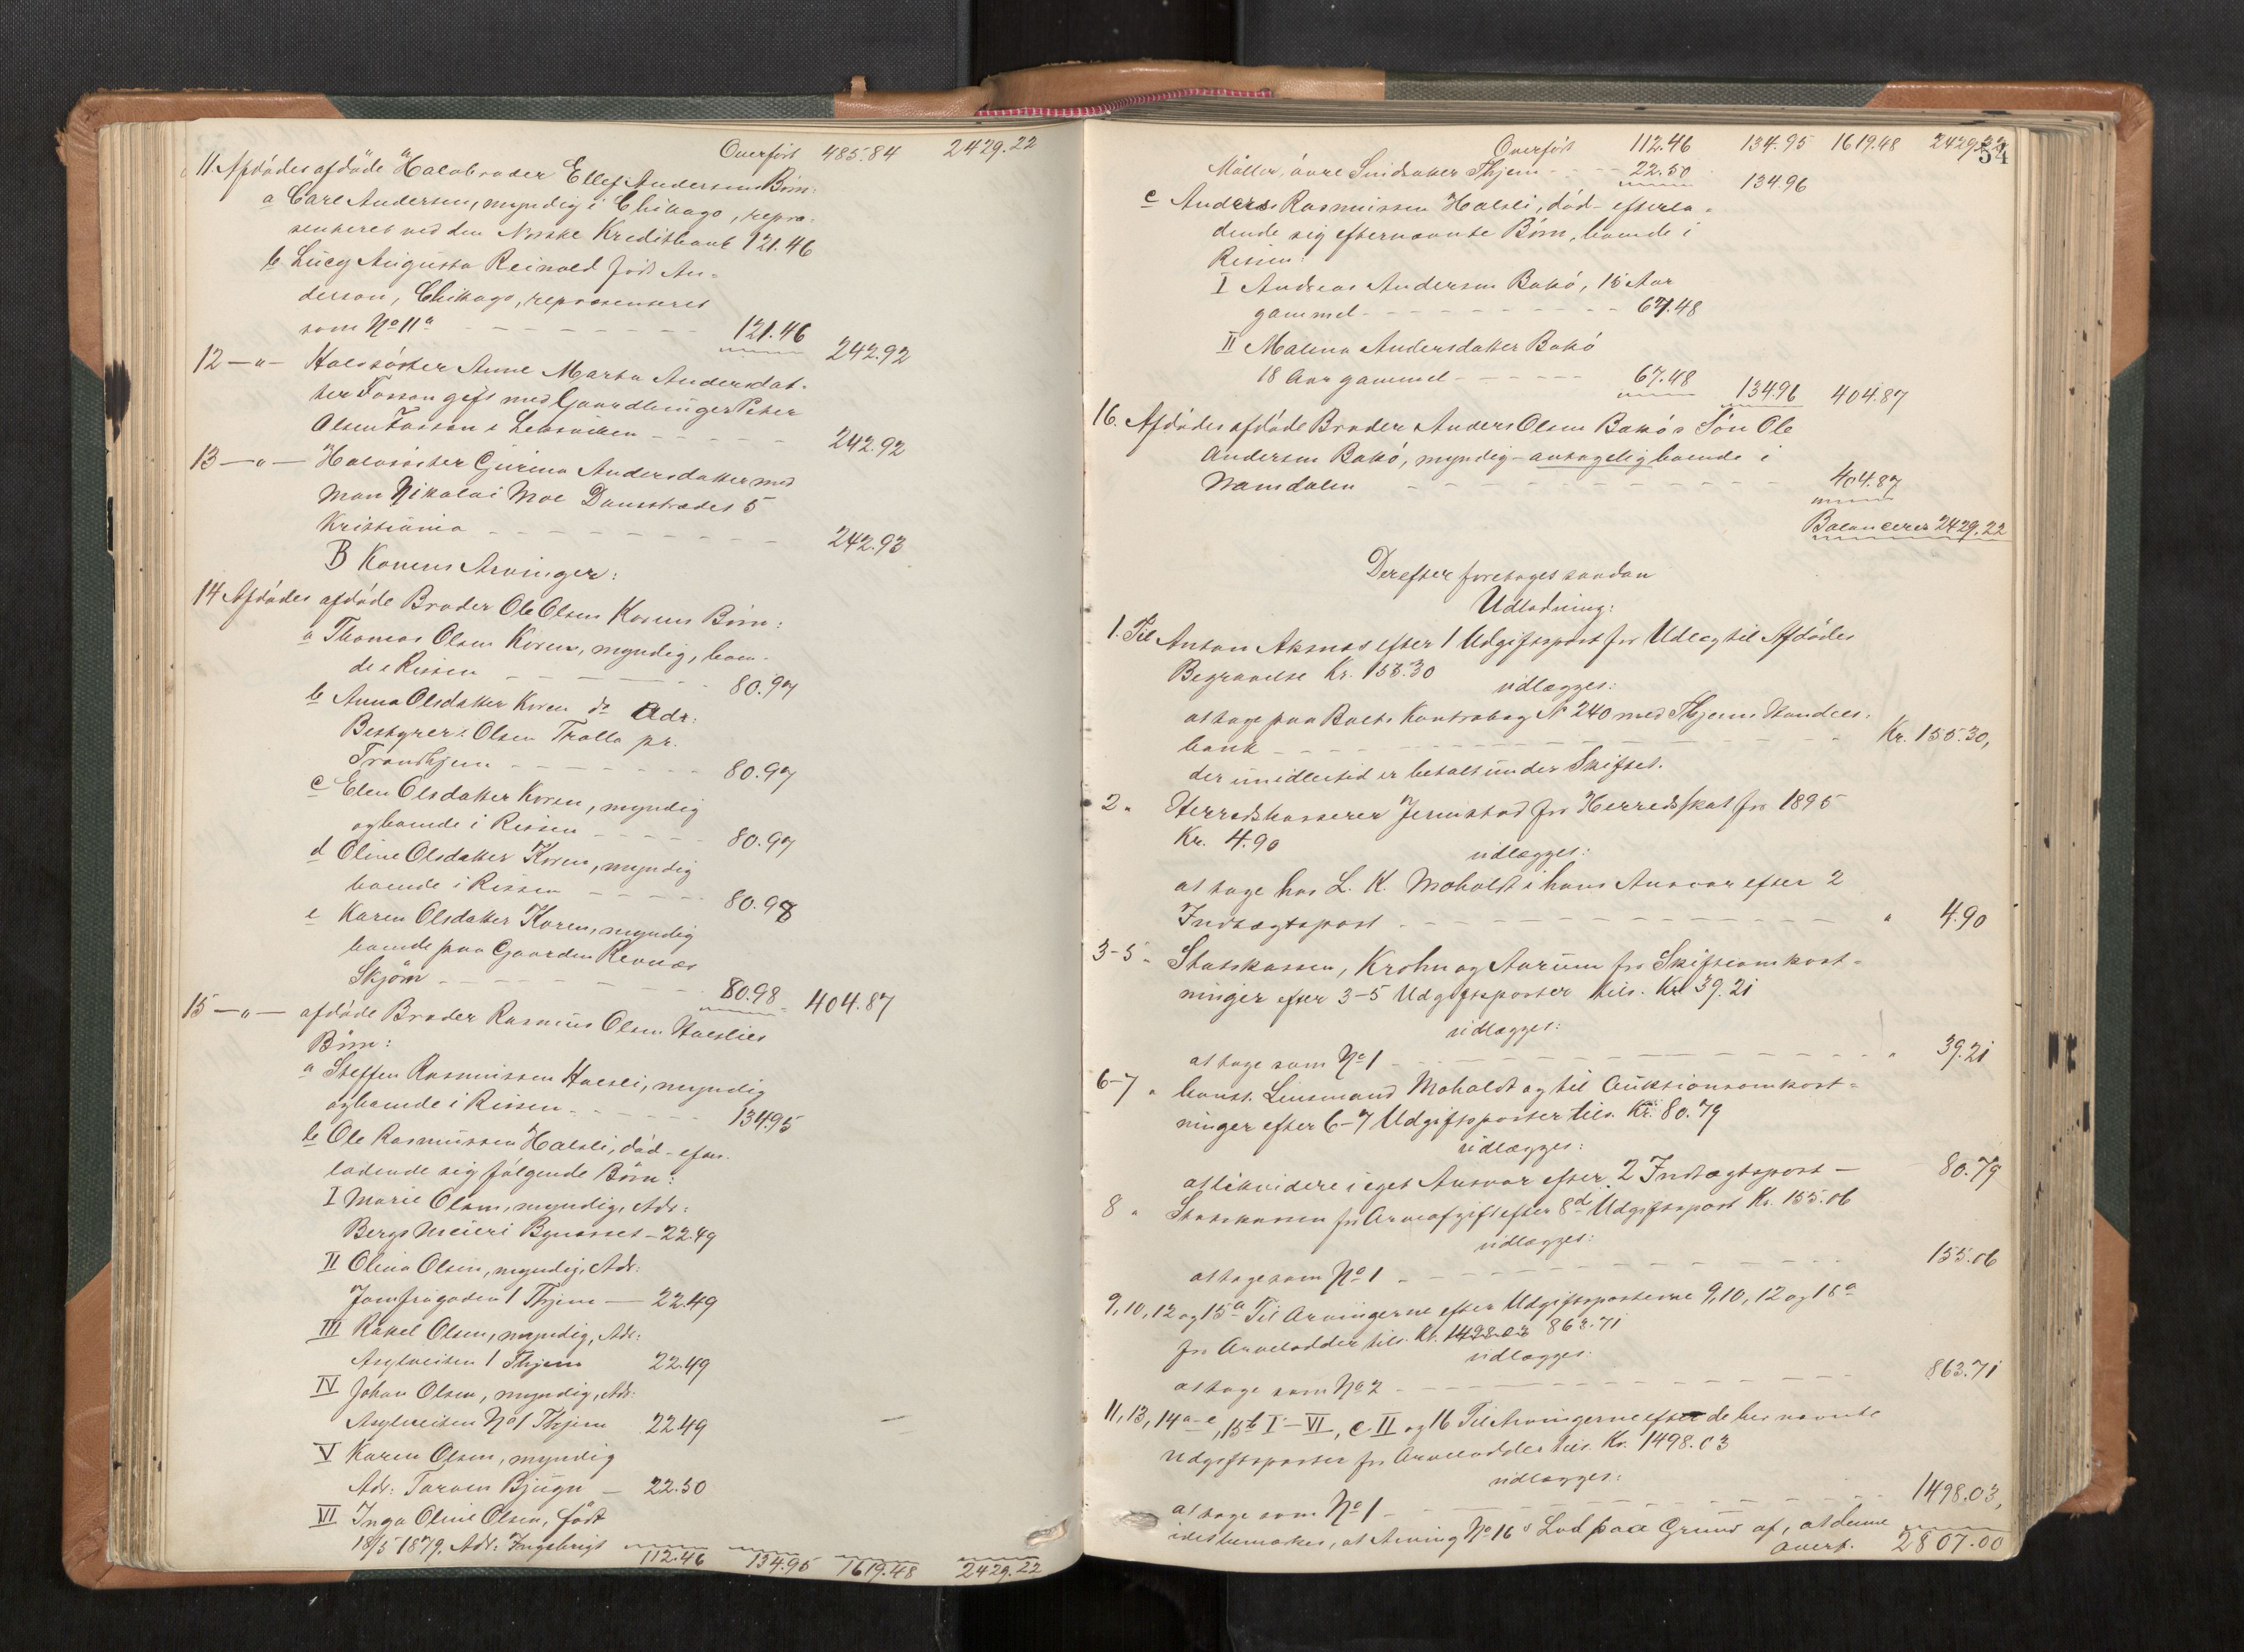 Overført 485.84 2429.22
11. Afdødes afdøde Halvbroder Ellef Andersens Børn:
a Carl Andersen, myndig i Chikago, repræ-
senteret ved den Norske Kreditbank 121.46
b Lucy Augusta Reinold født An-
derson, Chikago, repræsenteret
som No 11a 121.46 242.92
12 — " — Halvsøster Anne Marta Andersdat-
ter Fosson gift med Gaardbruger Peter
Olsen Fosson i Leksviken 242.92
13 — " — Halvsøster Gurina Andersdatter med
Man Nikolai Moe Damstrædet 5
Kristiania 242.93
B Konens Arvinger:
14 Afdødes afdøde Broder Ole Olsen Korens Børn:
a Thomas Olsen Koren, myndig, boen-
de i Rissen 80.97
b Anna Olsdatter Koren do Adr:
Bestyrer Olsen Trolla pr.
Trondhjem 80.97
c Elen Olsdatter Koren, myndig
og boende i Rissen 80.97
d Oline Olsdatter Koren, myndig
boende i Rissen 80.98
e Karen Olsdatter Koren, myndig
boende paa Gaarden Revnæs
Skjørn 80.98 404.87
15 — " — afdøde Broder Rasmus Olsen Halslis
Børn:
a Steffen Rasmussen Halsli, myndig
og boende i Rissen 134.95
b Ole Rasmussen Halsli, død - efter-
ladende sig følgende Børn:
I Marie Olsen, myndig, Adr:
Bergs Meieri Bynesset — 22.49
II Olina Olsen, myndig, Adr:
Jomfrugaden 1 Thjem — 22.49
III Rakel Olsen, myndig, Adr:
Asylveiten 1 Thjem 22.49
IV Johan Olsen, myndig, Adr:
Asylveiten No 1 Thjem 22.49
V Karen Olsen, myndig
Adr: Tarven Bjugn — 22.50
VI Inga Oline Olsen, født
18/5 1879, Adr: Ingebrigt
112.46 134.95 1619.48 2429.22
54
Overført 112.46 134.95 1619.48 2429.22
Møller, øvre Thjem 22.50 134.96
c Anders Rasmussen Halsli, død - efterla-
dende sig efternævnte Børn, boende i
Rissen:
I Andreas Andersen Bakø, 15 Aar
gammel 67.48
II Malena Andersdatter Bakø
18 Aar gammel 67.48 134.96 404.87
16. Afdødes afdøde Broder Anders Olsen Bakøs Søn Ole
Andersen Bakø, myndig - antagelig boende i
Namdalen 404.87
Balancerer 2429.22
Derefter foretoges saadan
Udlodning:
1. Til Anton Aksnes efter 1 Udgiftspost for Udlæg til Afdødes
Begravelse Kr. 155.30
udlægges:
at tage paa Boets Kontrabog No 240 med Thjems Handels-
bank Kr. 155.30,
der imidlertid er betalt under Skiftet.
2 " Herredskasserer Jernstad for Herredsskat for 1895
Kr. 4.90
udlægges:
at tage hos L. K. Moholdt i hans Ansvar efter 2
Indtægtspost " 4.90
3-5 " Statskassen, Krohn og Aurum for Skifteomkost-
ninger efter 3-5 Udgiftsposter tils. Kr 39.21
udlægges:
at tage som No 1 " 39.21
6-7 " konst. Lensmand Moholdt og til Auktionsomkost-
ninger efter 6-7 Udgiftsposter tils. Kr. 80.79
udlægges:
at likvidere i eget Ansvar efter 2 Indtægtspost — 80.79
8 " Statskassen for Arveafgift efter 8de Udgiftspost Kr. 155.06
udlægges:
at tage som No 1 155.06
9, 10, 12 og 15a Til Arvingerne efter Udgiftsposterne 9, 10, 12 og 15a
for Arvelodder tils. Kr. 1498.03 863.71
udlægges:
at tage som No 2 863.71
11, 13, 14a-e, 15b I-VI, c II og 16 Til Arvingerne efter de her nævnte
Udgiftsposter for Arvelodder tils. Kr. 1498.03
udlægges:
at tage som No 1 1498.03,
idet bemærkes, at Arving No 16s Lod paa Grund af, at denne
Overf. 2807.00